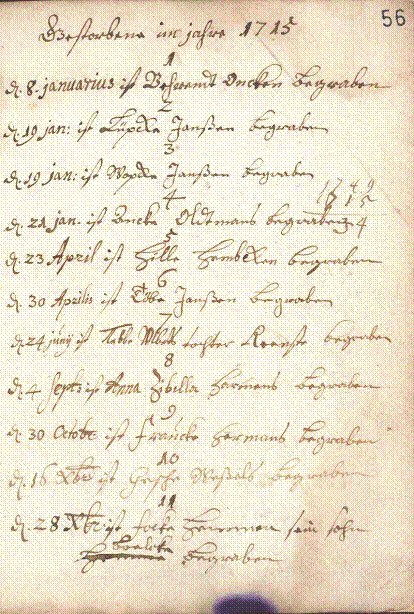 56
Gestorbene im jahre 1715
1
d. 8. januarius ist Behrendt Oncken begraben
2
d. 19 jan: ist Lüpcke Janßen begraben
3
d. 19 jan: ist Wopcke Janßen begraben
4
d. 21 jan. ist Oncke Oldtmans begraben
1749
1715
34
5
d. 23 April ist Hille Hembcken begraben
6
d. 30 Aprilis ist Tobe Janßen begraben
7
d. 24 ist tochter begraben
8
d. 4 Septr ist Anna Sibilla Harmens begraben
9
d. 30 Octobr ist Francke Hermans begraben
10
d. 16 Xbr ist Gesche Weßels begraben
11
d. 28 Xbr ist focke sein sohn
begraben